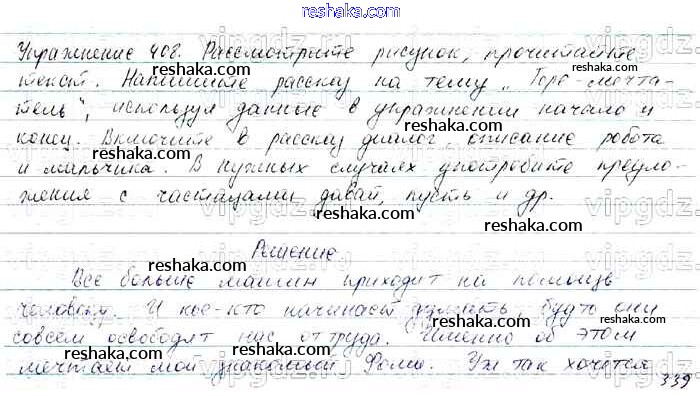 reshaka.com
Упражнение 408. Рассмотрите рисунок, прочитайте
текст. Напишите рассказ на тему „Горе-мечта-
тель", используя данные в упражнении начало и
конец. Включите в рассказ диалог, описание робота
и мальчика. В нужных случаях употребите предло-
жения с частицами давай, пусть и др.
Решение
Все больше машин приходит на помощь
человеку. И кое-кто начинает думать, будто они
совсем освободят нас от труда. Именно об этом
мечтает мой знакомый Фома. Уж так хочется
339